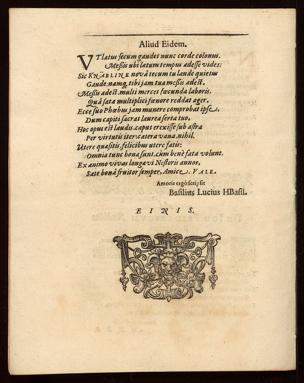 Aliud Eidem.
VTlatus secum gaudet nunc corde colonus,
Messis ubi latum tempus adesse videt:
Sic KNÄBLINE novâ tecum tu laude quietus
Gaude. namq; tibi jam tua messis adest.
Messis adest. multi merces fœcunda laboris.
Quâ sata multiplici fœnore reddat ager.
Ecce suo Phœbus jam munere comprobat ipse,
Dum capiti sacrat laurea serta tuo.
Hoc opus est laudis. caput erexisse sub astra
Per virtutis iter. cætera vana. nihil.
Utere quæsitis, felicibus utere fatis:
Omnia tunc bona sunt, cùm benè fata volunt.
Ex animo vivas longævi Nestoris annos,
Sate bonâ fruitor semper, Amice. VALE.
Amoris ergò scripsit
Basilius Lucius HBasil.
FINIS.